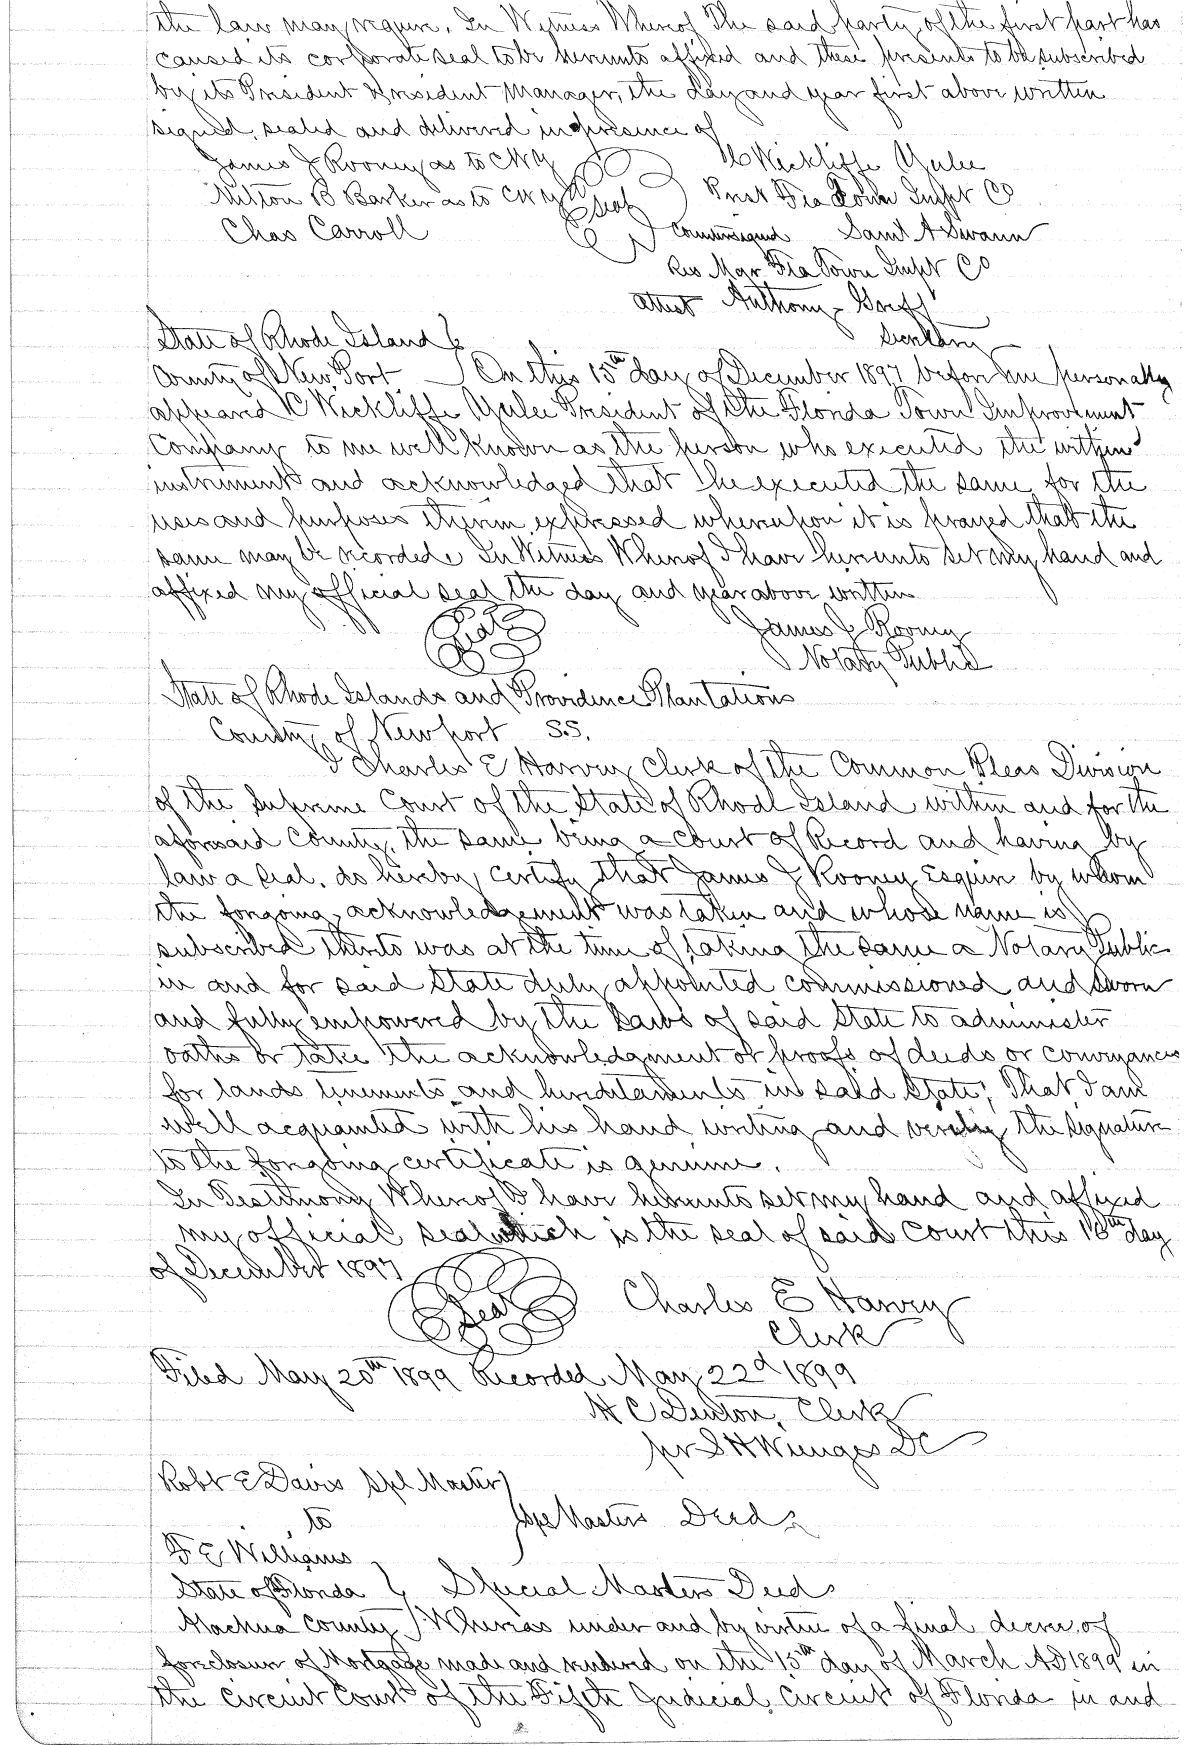 the law may require. In Witness Whereof The said party of the first part has
caused its corporate seal to be hereunto affixed and these presents to be subscribed
by its President & resident Manager, the day and year first above written
signed, sealed and delivered in presence of
James J Rooney as to CWY C Wickliffe Yulee
Milton B Barker as to CWY Seal Prest Fla Town Impt Co
Chas Carroll Countersigned Saml A Swann
Res Mgr Fla Town Impt Co
attest Anthony Greff
Secretary
State of Rhode Island
County of New Port On this 15th day of December 1897 before me personally
appeared C Wickliffe Yulee President of the Florida Town Improvement
Company to me well known as the person who executed the within
instrument and acknowledged that he executed the same for the
uses and purposes therein expressed whereupon it is prayed that the
same may be recorded. In Witness Whereof I have hereunto set my hand and
affixed my official seal the day and year above written
Seal James J Rooney
Notary Public
State of Rhode Islands and Providence Plantations
County of Newport S.S.
I Charles E Harvey Clerk of the Common Pleas Division
of the Supreme Court of the State of Rhode Island within and for the
aforesaid County, the same being a Court of Record and having by
law a seal. do hereby certify that James J Rooney Esquire by whom
the foregoing acknowledgement was taken and whose name is
subscribed thereto was at the time of taking the same a Notary Public
in and for said State duly appointed commissioned and sworn
and fully empowered by the Laws of said State to administer
oaths or take the acknowledgment or proofs of deeds or conveyances
for lands tenements and hereditaments in said State; That I am
well acquainted with his hand writing and verily the signature
to the foregoing certificate is genuine.
In Testimony Whereof I have hereunto set my hand and affixed
my official seal which is the seal of said Court this 16th day
of December 1897
Seal Charles E Harvey
Clerk
Filed May 20th 1899 Recorded May 22d 1899
H C Denton, Clerk
pr S H Wienges DC
Robt E Davis Spl Master
to Spe Masters Deed
F E Williams
State of Florida Special Masters Deed
Alachua County Whereas under and by virtue of a final decree of
foreclosure of Mortgage made and rendered on the 15th day of March AD 1899 in
the Circuit Court of the Fifth Judicial Circuit of Florida in and